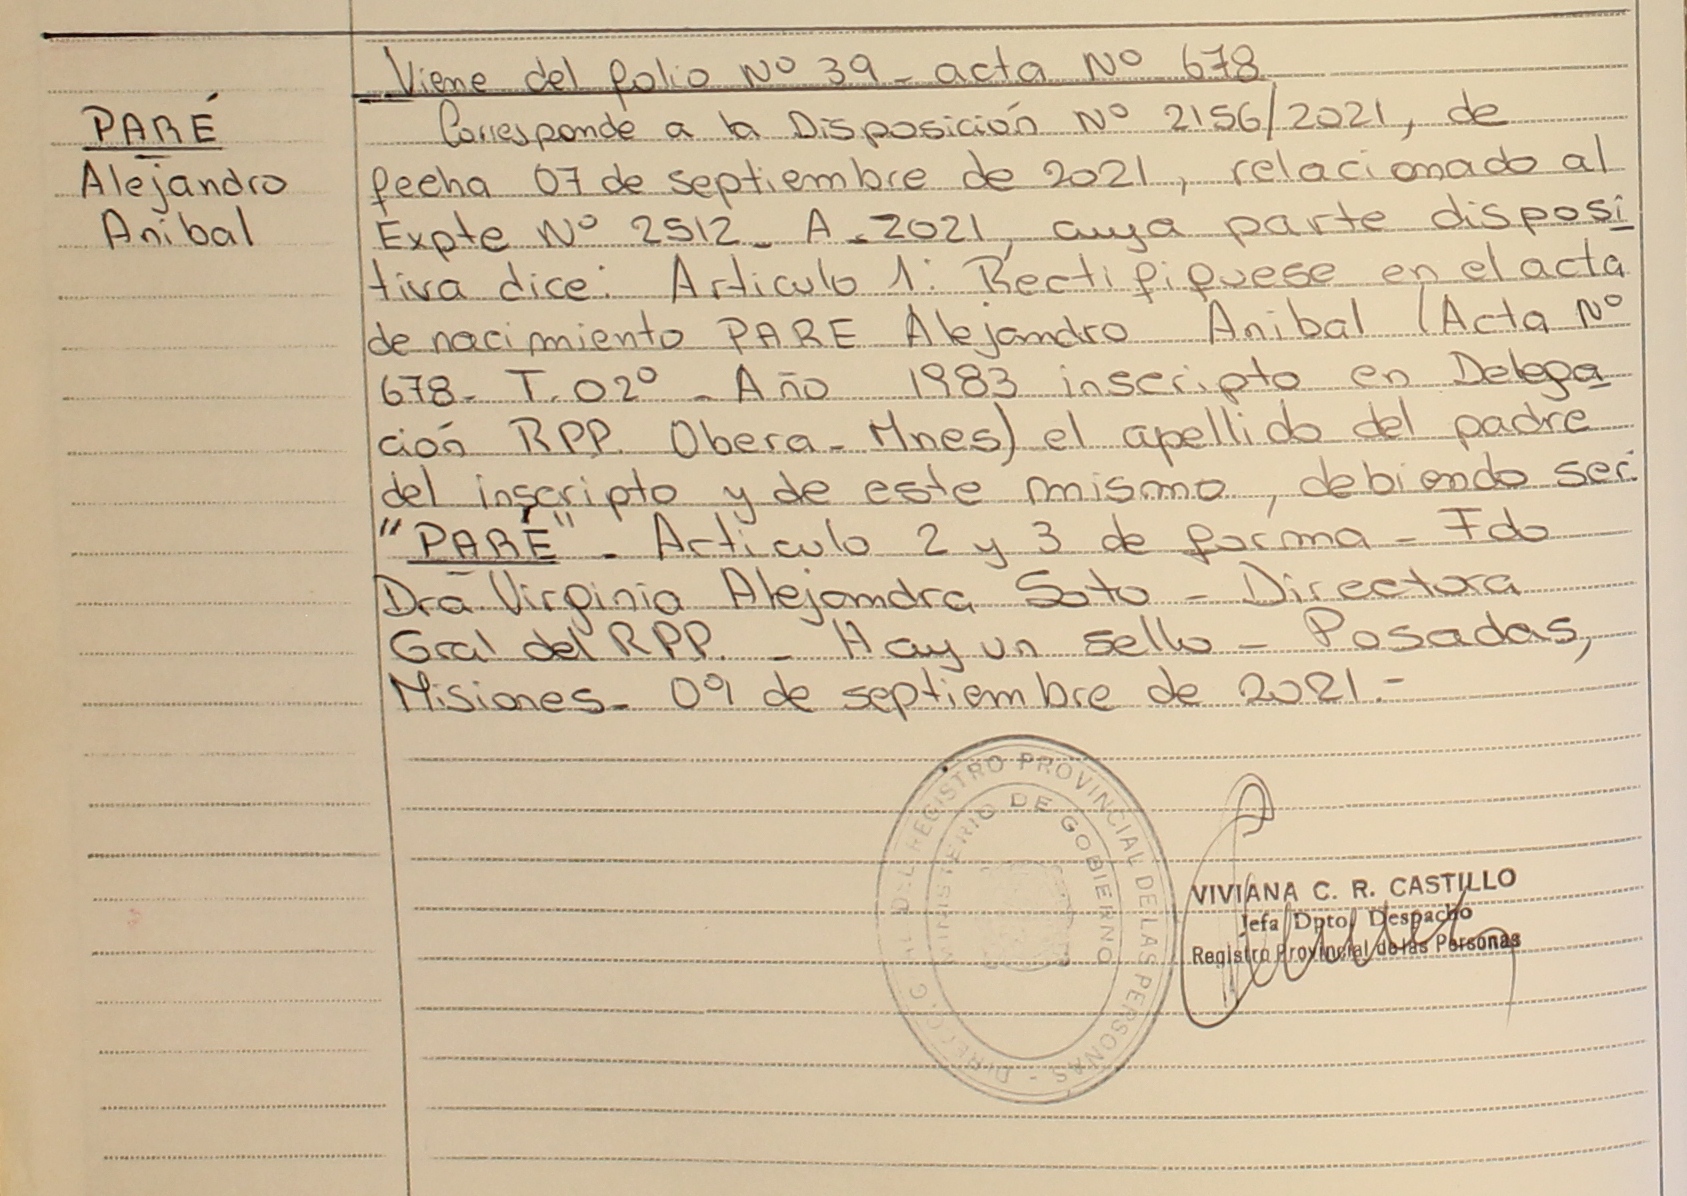 Viene del folio Nº 39 - acta Nº 678
PARÉ
Alejandro
Anibal
Corresponde a la Disposición Nº 2156/2021, de
fecha 07 de septiembre de 2021, relacionado al
Expte Nº 2512 - A - 2021, cuya parte disposi
tiva dice: Articulo 1: Rectifiquese en el acta
de nacimiento PARE Alejandro Anibal (Acta Nº
678 - T. 02º - Año 1983 inscripto en Delega
ción RPP. Obera - Mnes) el apellido del padre
del inscripto y de este mismo, debiendo ser:
"PARÉ" - Articulo 2 y 3 de forma - Fdo
Dra Virginia Alejandra Soto - Directora
Gral del RPP. - Hay un sello - Posadas,
Misiones - 09 de septiembre de 2021.-
DIRECC. G RAL DEL REGISTRO PROVINCIAL DE LAS PERSONAS -
MINISTERIO DE GOBIERNO
VIVIANA C. R. CASTILLO
Jefa Dpto. Despacho
Registro Provincial de las Personas